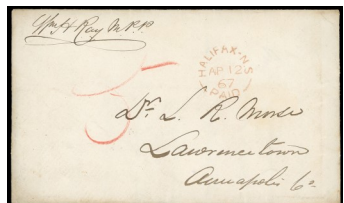 Wm H Ray M.P.P.
HALIFAX·N·S
AP 12
67
PAID
5
Dr. L. R. Morse
Lawrencetown
Annapolis Co.